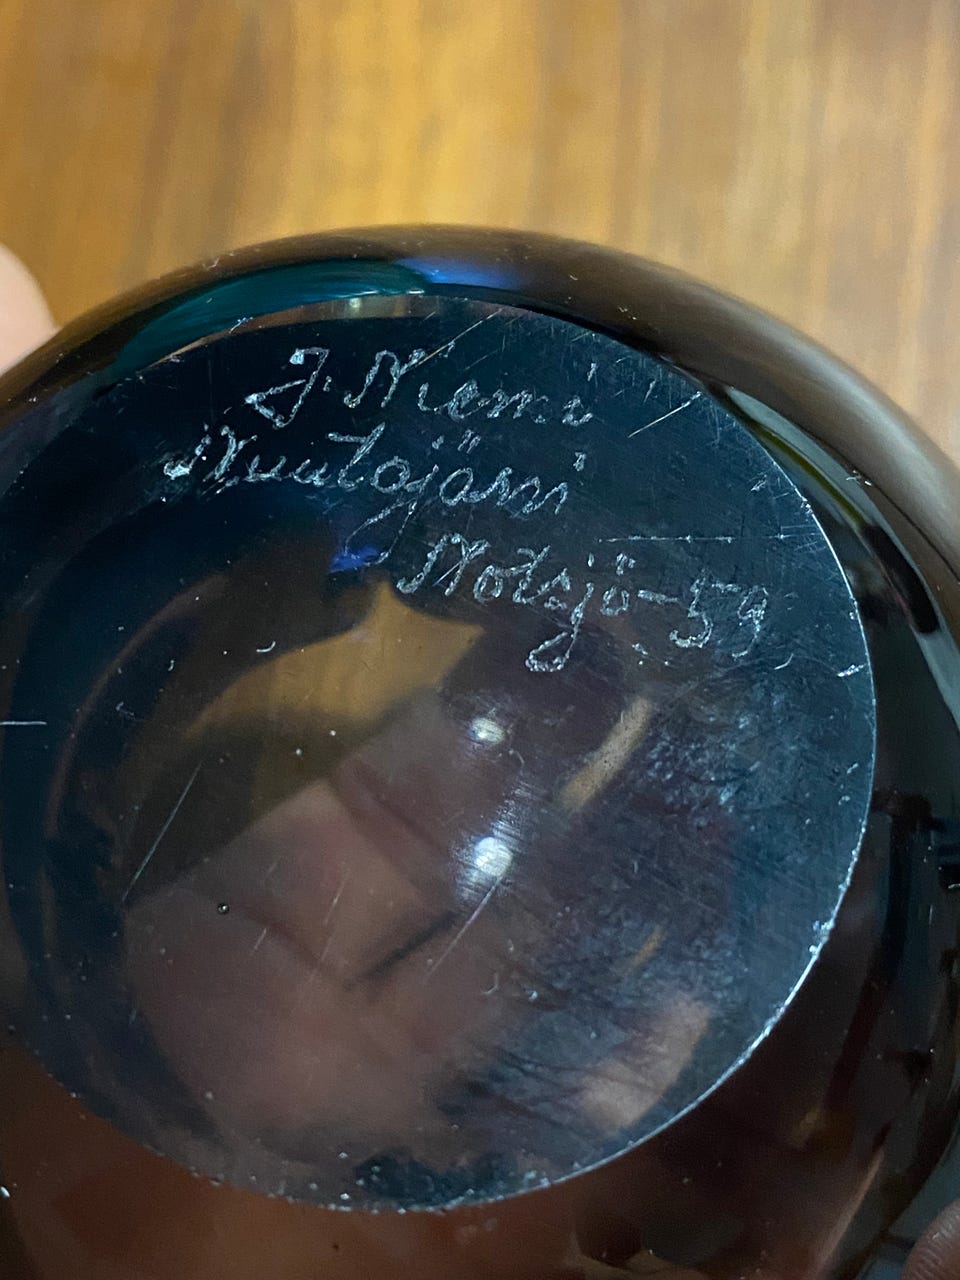 J. Niemi
Nuutajärvi
Notsjö-59